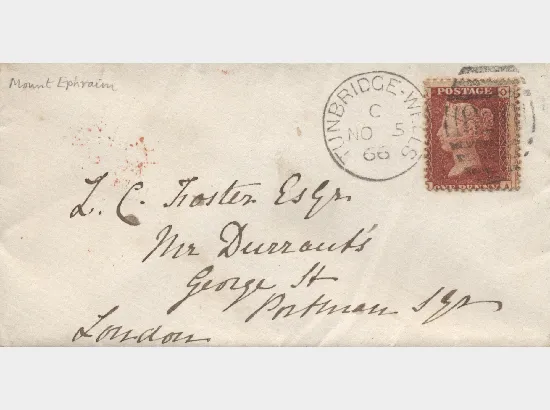 Mount Ephraim
TUNBRIDGE-WELLS
C
NO 5
66
POSTAGE
ONE PENNY
L. C. Foster Esqr.
Mr Durrant's
George St
Portman Sqr
London